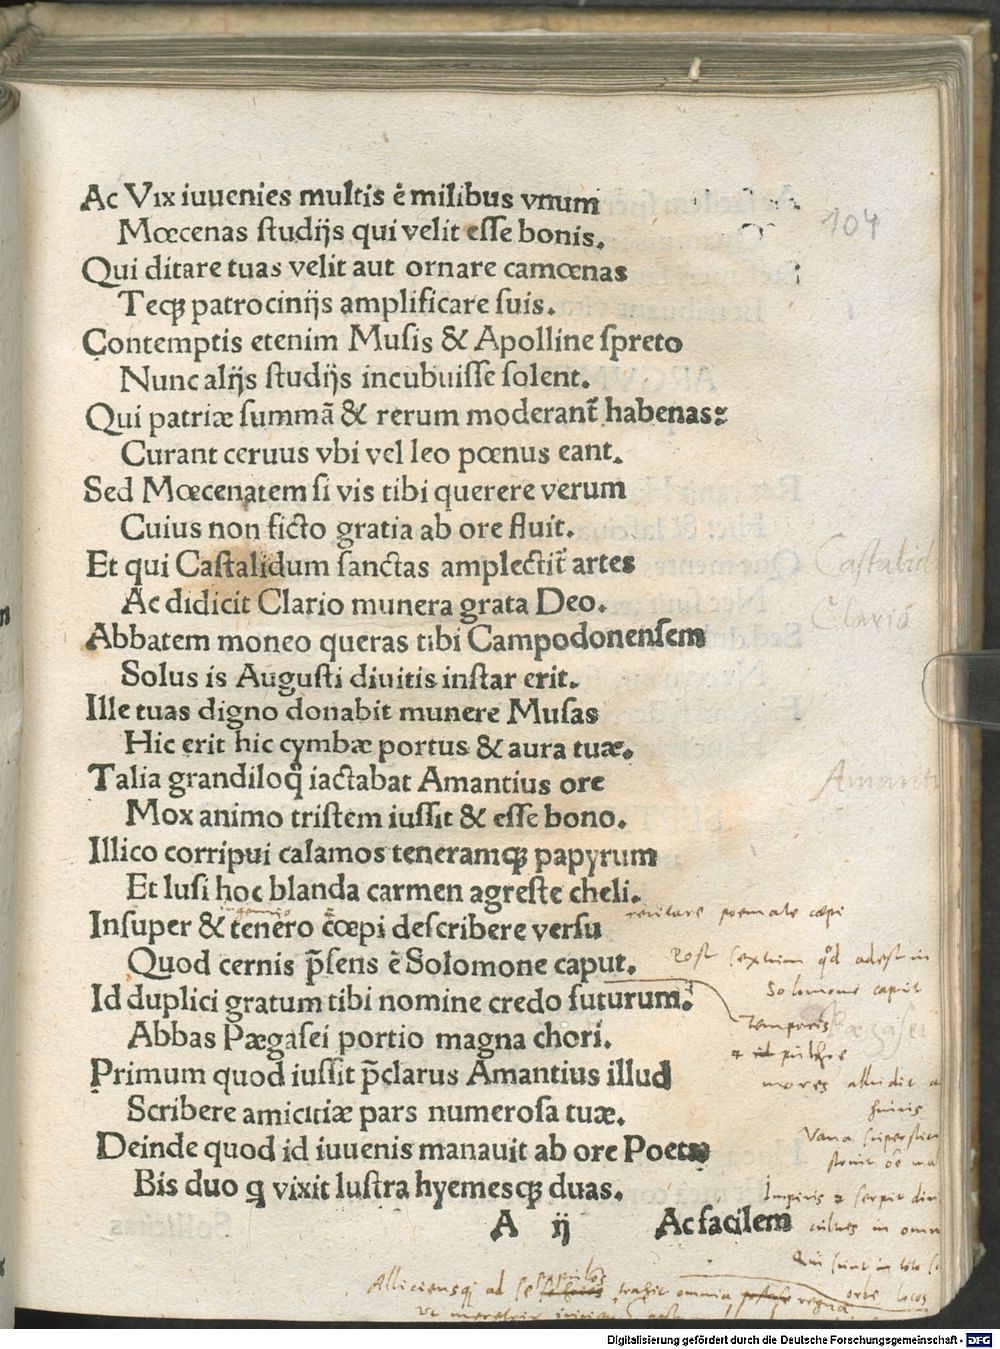 Ac Vix iuuenies multis ẽ milibus vnum
Mœcenas studijs qui velit esse bonis.
104
Qui ditare tuas velit aut ornare camœnas
Teqꝫ patrocinijs amplificare suis.
Contemptis etenim Musis & Apolline spreto
Nunc alijs studijs incubuisse solent.
Qui patriæ summã & rerum moderant̃ habenas:
Curant ceruus vbi vel leo pœnus eant.
Sed Mœcenatem si vis tibi querere verum
Cuius non ficto gratia ab ore fluit.
Et qui Castalidum sanctas amplectit̃ artes
Castalid
Ac didicit Clario munera grata Deo.
Clario
Abbatem moneo queras tibi Campodonensem
Solus is Augusti diuitis instar erit.
Ille tuas digno donabit munere Musas
Hic erit hic cymbæ portus & aura tuæ.
Talia grandiloq̃ iactabat Amantius ore
Amanti
Mox animo tristem iussit & esse bono.
Illico corripui calamos teneramqꝫ papyrum
Et lusi hoc blanda carmen agreste cheli.
ingenuo
recitare poemate cœpi
Insuper & tenero c̃œpi describere versu
Post sextum qd adest in
Quod cernis p̃sens ẽ Solomone caput.
Solomone caput
Id duplici gratum tibi nomine credo futurum:
Temporis
Pægasei
Abbas Pægasei portio magna chori.
Primum quod iussit p̃clarus Amantius illud
mores alludit
Scribere amicitiæ pars numerosa tuæ.
huius
Deinde quod id iuuenis manauit ab ore Poetæ
Vana superstic
Bis duo q̨ vixit lustra hyemesqꝫ duas.
Impius & serpit
A ij
Ac facilem
cultus in omn
Qui sunt in toto
Alliciensqꝫ ad se populos trahit omnia regna
orbe locos
Digitalisierung gefördert durch die Deutsche Forschungsgemeinschaft - DFG